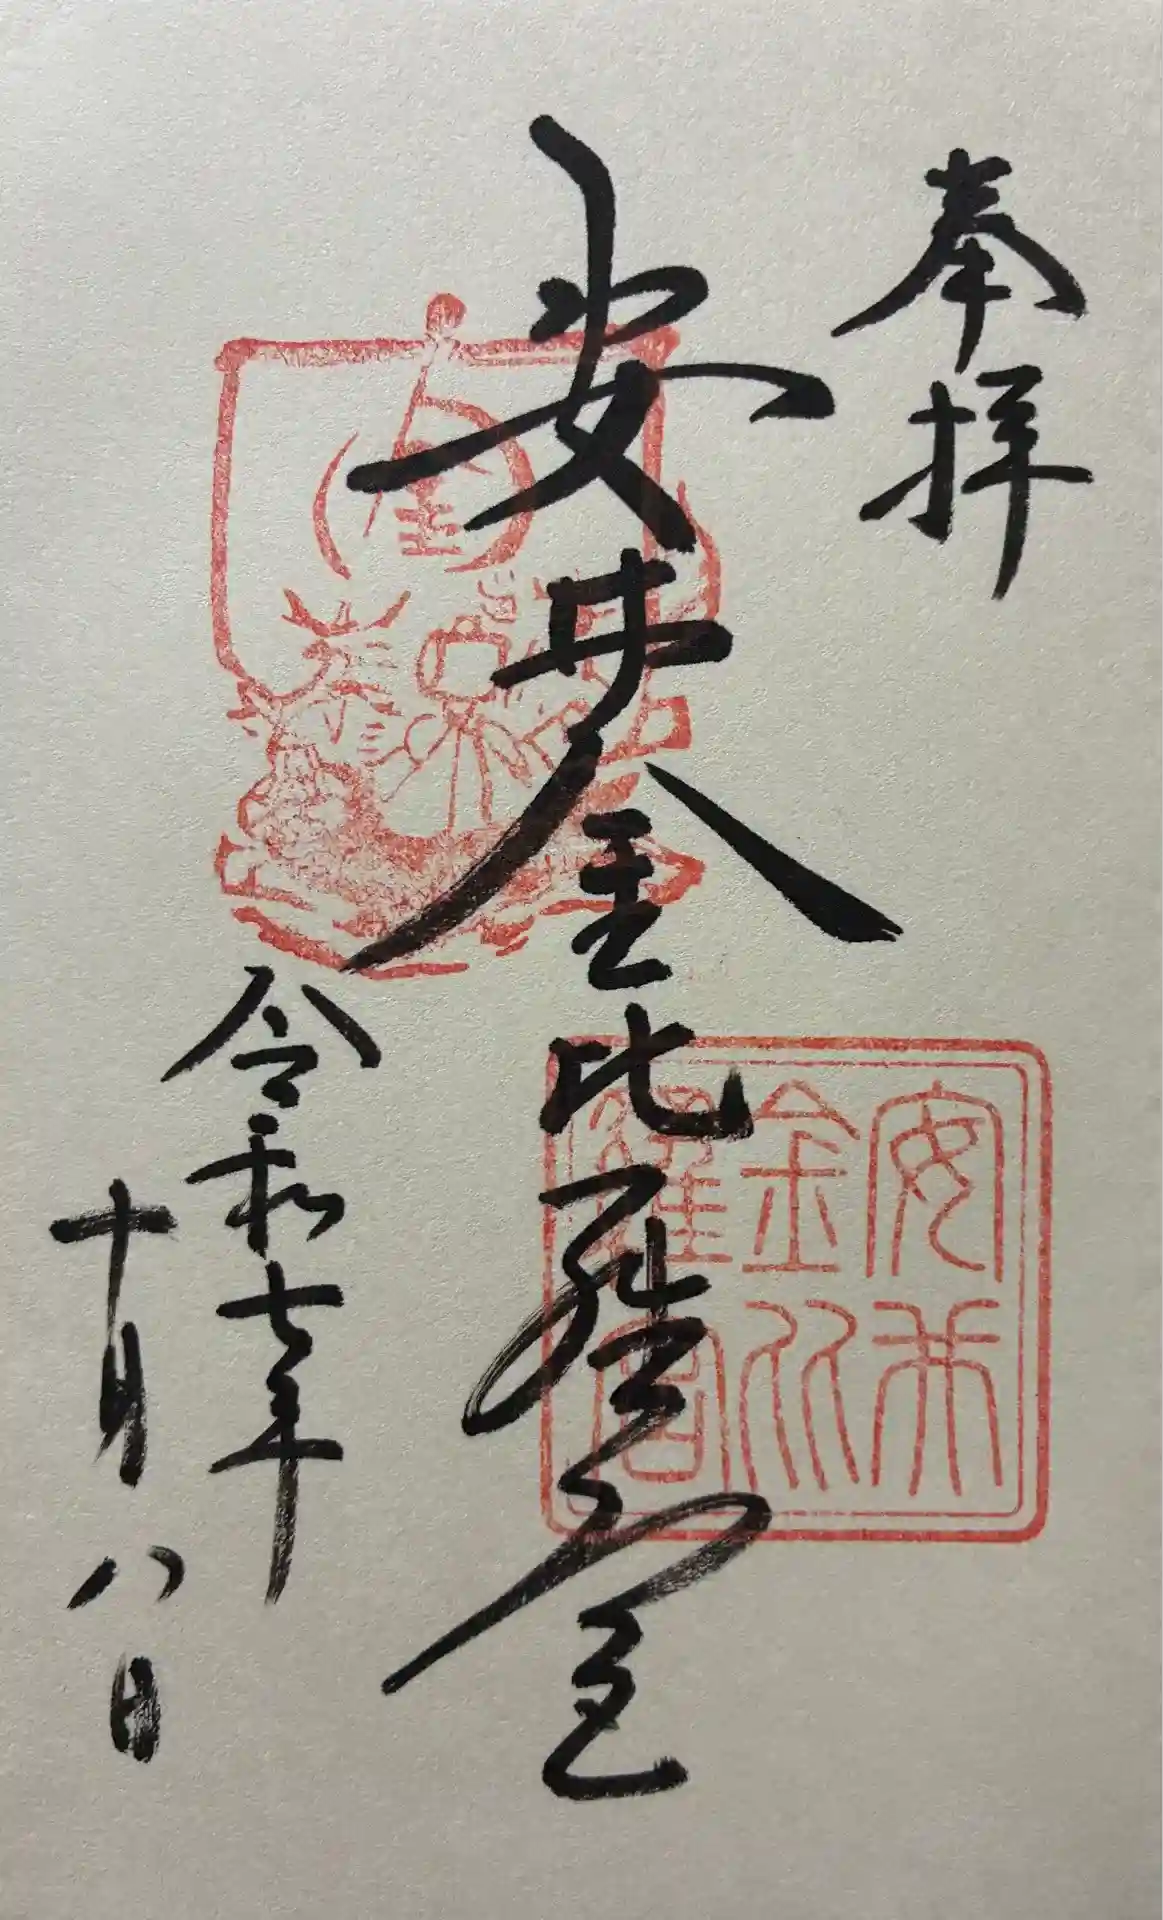 奉拝
安井金比羅宮
安井
金比
羅宮
令和七年
十月八日